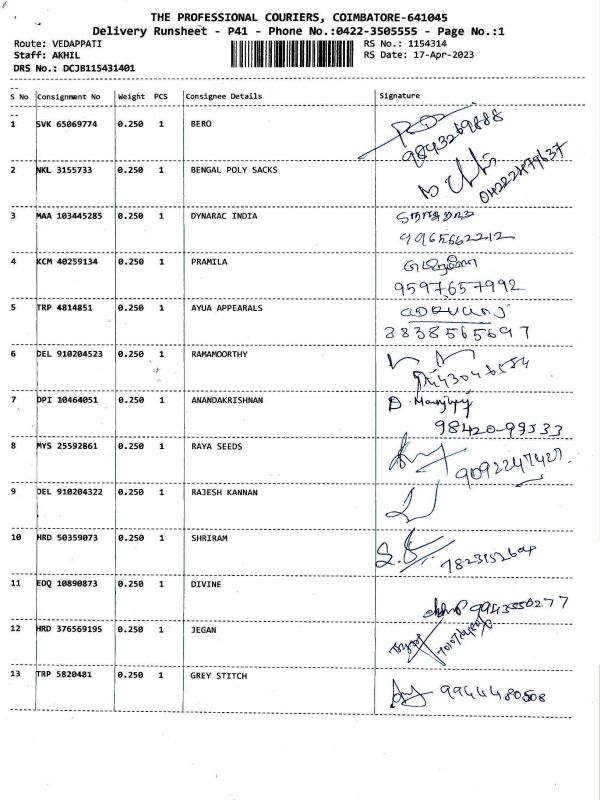 THE PROFESSIONAL COURIERS, COIMBATORE-641045
Delivery Runsheet - P41 - Phone No.:0422-3505555 - Page No.:1
Route: VEDAPPATI RS No.: 1154314
Staff: AKHIL RS Date: 17-Apr-2023
DRS No.: DCJB115431401
S No Consignment No Weight PCS Consignee Details Signature
1 SVK 65069774 0.250 1 BERO
9843269888
2 NKL 3155733 0.250 1 BENGAL POLY SACKS
3 MAA 103445285 0.250 1 DYNARC INDIA
9965662212
4 KCM 40259134 0.250 1 PRAMILA
9597657992
5 TRP 4814851 0.250 1 AYUA APPEARALS
3838565697
6 DEL 910204523 0.250 1 RAMAMOORTHY
7 DPI 10464051 0.250 1 ANANDAKRISHNAN
98420-99533
8 MYS 25592861 0.250 1 RAYA SEEDS
9092247427
9 DEL 910204322 0.250 1 RAJESH KANNAN
10 HRD 50359073 0.250 1 SHRIRAM
11 EDQ 10890873 0.250 1 DIVINE
9943550277
12 HRD 376569195 0.250 1 JEGAN
13 TRP 5820481 0.250 1 GREY STITCH
9944480508